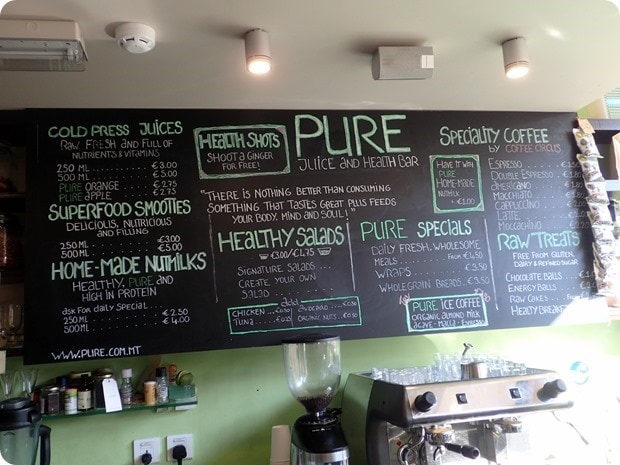 COLD PRESS JUICES
RAW, FRESH AND FULL OF
NUTRIENTS & VITAMINS
250 ML €3.00
500 ML €5.00
PURE ORANGE €2.75
PURE APPLE €2.75
SUPERFOOD SMOOTIES
DELICIOUS, NUTRICIOUS
AND FILLING
250 ML €3.00
500 ML €5.00
HOME-MADE NUTMILKS
HEALTHY, PURE AND
HIGH IN PROTEIN
ask for daily special
250 ML €2.50
500 ML €4.00
WWW.PURE.COM.MT
HEALTH SHOTS
SHOOT A GINGER
FOR FREE!
PURE
JUICE AND HEALTH BAR
"THERE IS NOTHING BETTER THAN CONSUMING
SOMETHING THAT TASTES GREAT PLUS FEEDS
YOUR BODY, MIND AND SOUL!"
HEALTHY SALADS
€3.00/4.75
SIGNATURE SALADS
CREATE YOUR OWN
SALAD
add
CHICKEN AVOCADO
TUNA ORGANIC NUTS
PURE SPECIALS
DAILY FRESH, WHOLESOME
MEALS FROM €4.50
WRAPS €3.50
WHOLEGRAIN BREADS €3.50
PURE ICE COFFEE
ORGANIC ALMOND MILK
agave - Macca - Espresso
SPECIALITY COFFEE
BY COFFEE CIRCUS
HAVE IT WITH
PURE
HOME-MADE
NUTMILK
+ €1.00
ESPRESSO
DOUBLE ESPRESSO
AMERICANO
MACCHIATO
CAPPUCCINO
LATTE
MOCCACHINO
RAW TREATS
FREE FROM GLUTEN,
DAIRY & REFINED SUGAR
CHOCOLATE BALLS
ENERGY BALLS
RAW CAKES FROM